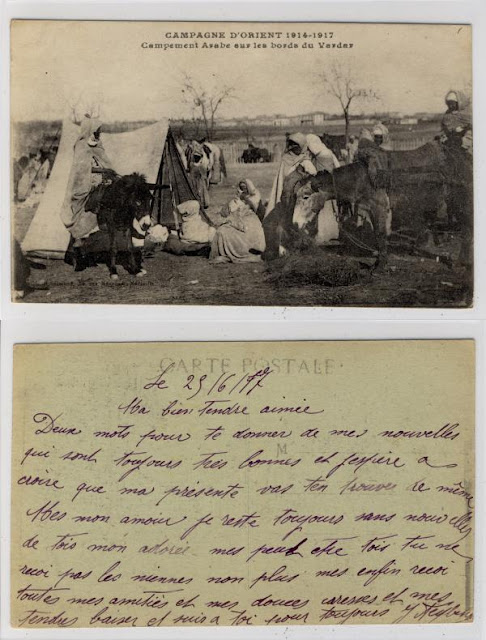 CAMPAGNE D'ORIENT 1914-1917
Campement Arabe sur les bords du Vardar
CARTE POSTALE
Le 23/6/17
Ma bien tendre aimée
Deux mots pour te donner de mes nouvelles
qui sont toujours tres bonnes et j'espère a
croire que ma présente vas ten trouver de même
Mes mon amour je reste toujours sans nouvelles
de tois mon adorée mes peud etre tois tu ne
recoi pas les miennes non plus mes enfin recoi
toutes mes amitiés et mes douces caresses et mes
tendres baiser et suis a toi pour toujours